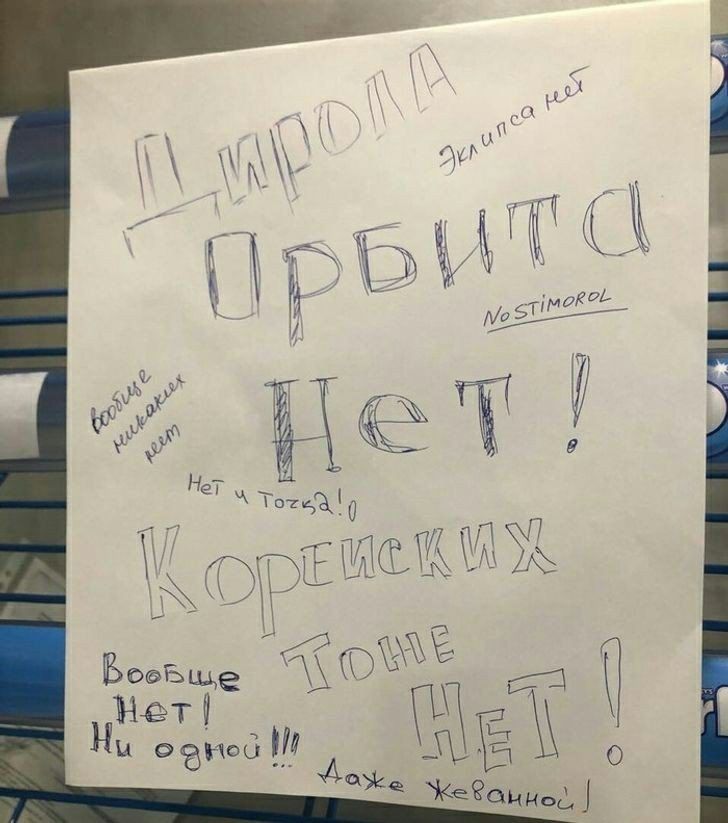 Дирола
Эклипса нет
Орбита
No STIMOROL
Нет!
вообще
никаких
нет
Нет и Точка!
Корейских
Тоже
Нет!
Вообще
Нет!
Ни одной!!!
Даже жеванной!